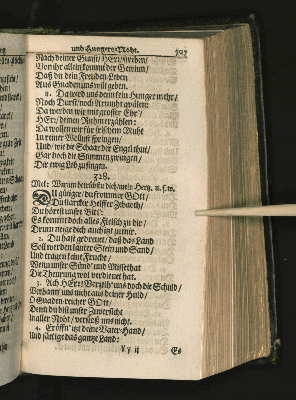 und Hungers-Noht. 707
Nach deiner Gunst/ HErr/ streben/
Von ihr allein kommt der Gewinn/
Daß du dein Freuden-Erben
Aus Gnaden uns wil geben.
8. Da wird uns denn kein Hunger mehr/
Noch Durst/ noch Armuht quälen:
Da werden wir mit grosser Ehr'/
HErr/ deinen Ruhm erzählen:
Da wollen wir für frischem Muht
In reiner Wollust springen/
Und/ wie die Schaar der Engel thut/
Gar hoch die Stimmen zwingen/
Dir ewig Lob zu singen.
328.
Mel: Warum betrübst du dich/ mein Hertz. u.s.w.
DU gütiger/ du frommer GOtt/
Du starcker Helffer Zebaoth/
Du hörest unser Bitt':
Es kommt doch alles Fleisch zu dir/
Drum neige dich auch itzt zu mir.
2. Du hast gedreuet/ daß das Land
Soll werden lauter Stein und Sand/
Und tragen keine Frucht/
Wenn unser Sünd' und Missethat
Die Theurung wol verdienet hat.
3. Ach HErr/ Verzeih' uns doch die Schuld/
Verbann' uns nicht aus deiner Huld/
O Gnaden-reicher GOtt/
Denn du bist unser Zuversicht
In aller Noht/ verlaß uns nicht.
4. Eröffn' itzt deine Vater-Hand/
Und sättige das gantze Land:
Yy ij Es